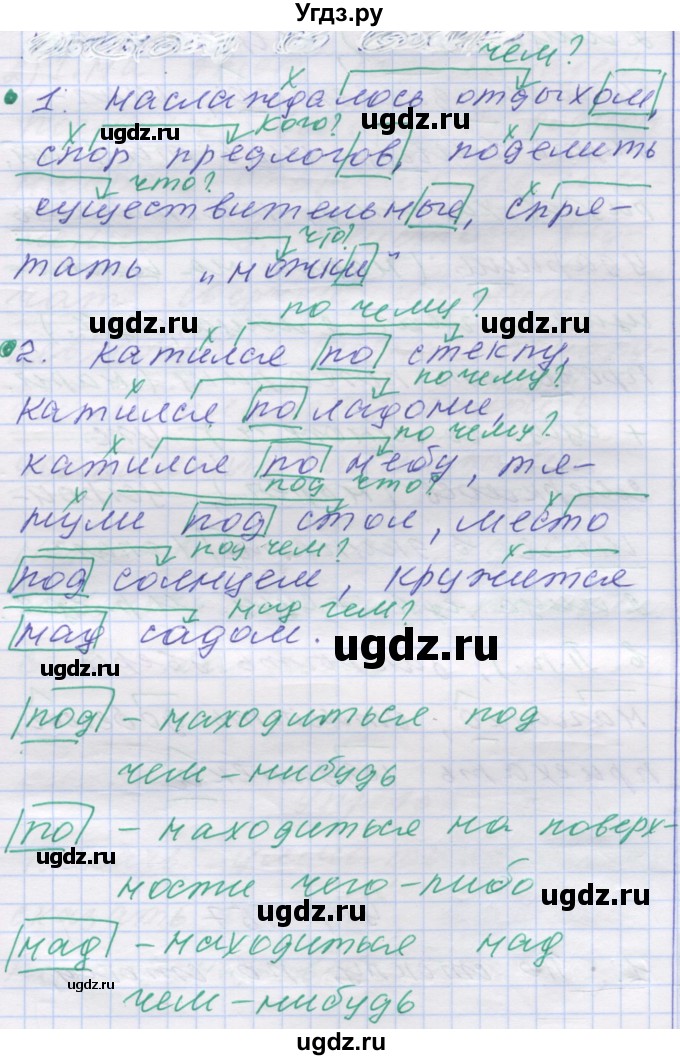 Угдз.ру
чем?
1. наслаждалось отдыхом,
ugdz.ru ugdz.ru
кого?
спор предлогов, поделить
что?
существительные, спря-
что?
тать „ножки"
ugdz.ru ugdz.ru
по чему?
2. катился по стеклу,
почему?
катился по ладони,
по чему?
катился по небу, тя-
под что?
нули под стол, место
под чем?
под солнцем, кружится
над чем?
над садом.
ugdz.ru
ugdz.ru
под – находиться под
ugdz.ru
чем-нибудь
по – находиться на поверх-
ugdz.ru
ности чего-либо
ugdz.ru
ugdz.ru
над – находиться над
ugdz.ru
чем-нибудь
ugdz.ru